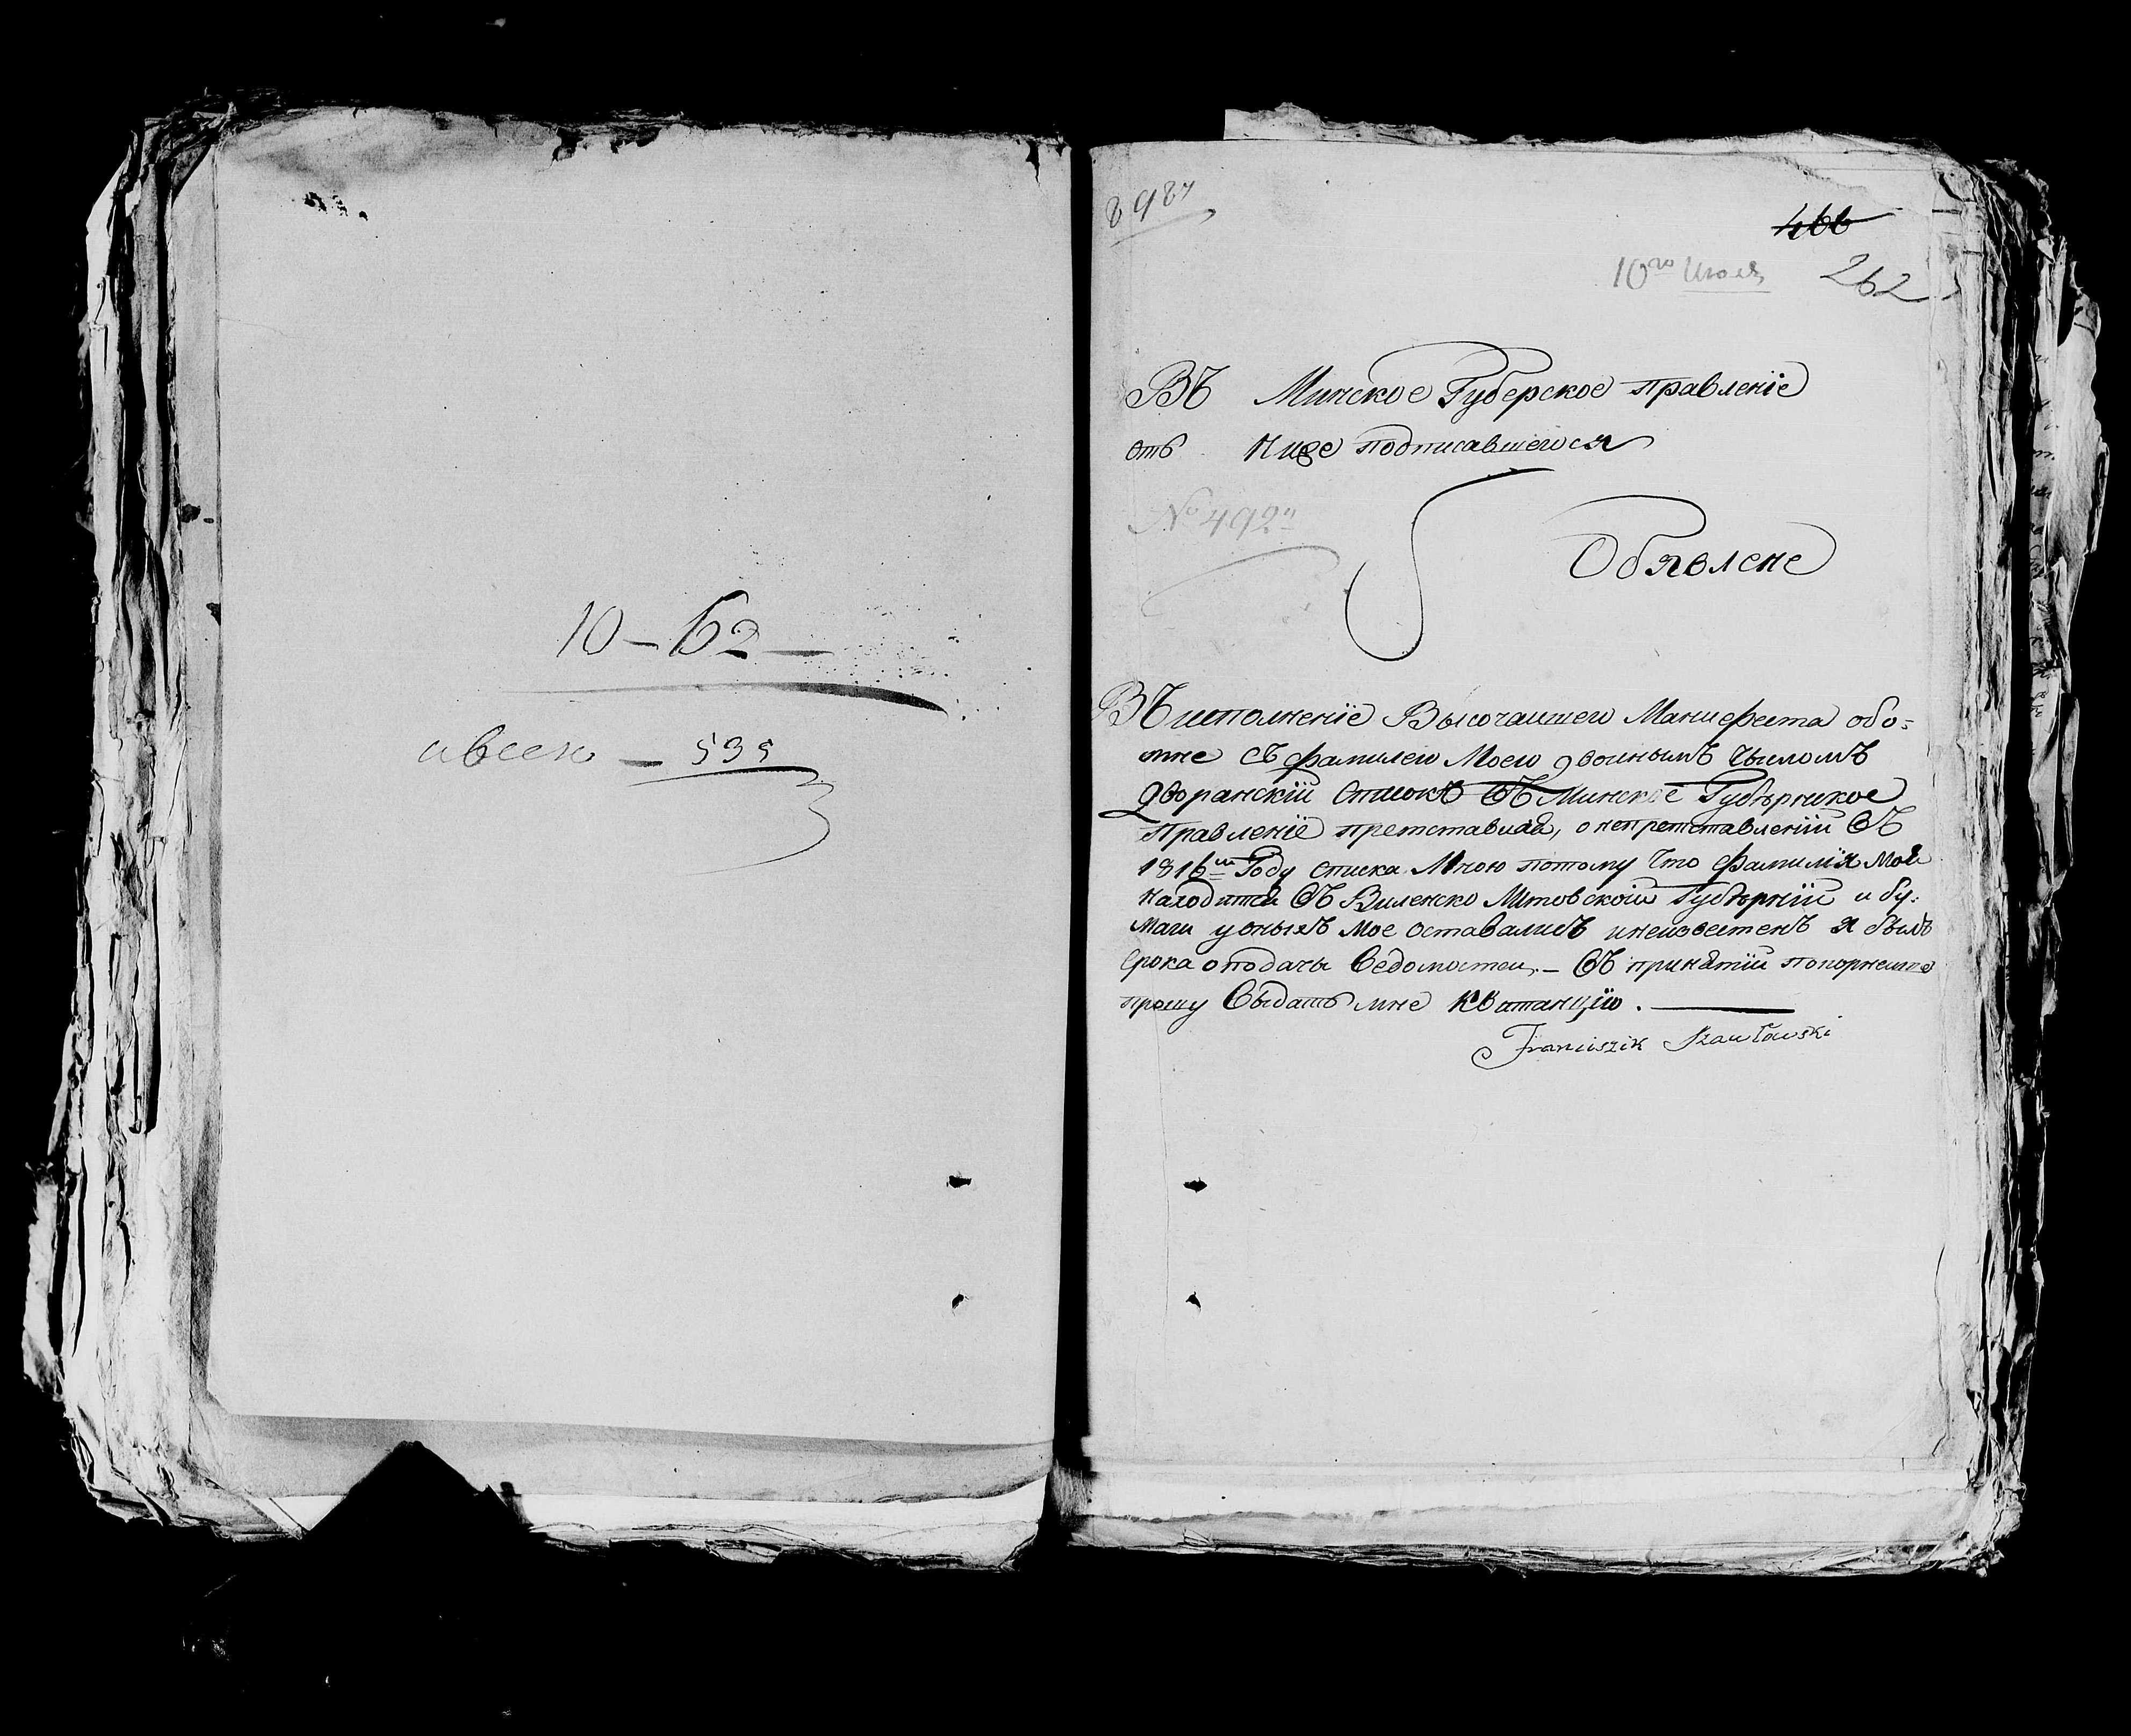 10 – 62 –
всех – 535
8987
466
10го Июля 262
Въ Минское Губерское правленіе
отъ Ниже подписавшегося
№ 492
Обявлене
Въ исполненіе Высочаишего Манифеста обо=
мне съ фамилею Моею двоинымъ
дворанскій Списокъ въ Минское Губърнское
Правленіе претставида, о непретставленіи въ
1816м Году списка Мною потому что фамилія Моя
находится въ Виленско Литовскои Губърніи и бу:
маги у оныхъ мое оставалисъ и неизвестенъ я былъ
срока о подачы ведомостеи. – въ принятіи покорнеише
прошу выдатъ мне квитанцію.
Franciszik Szawłowski